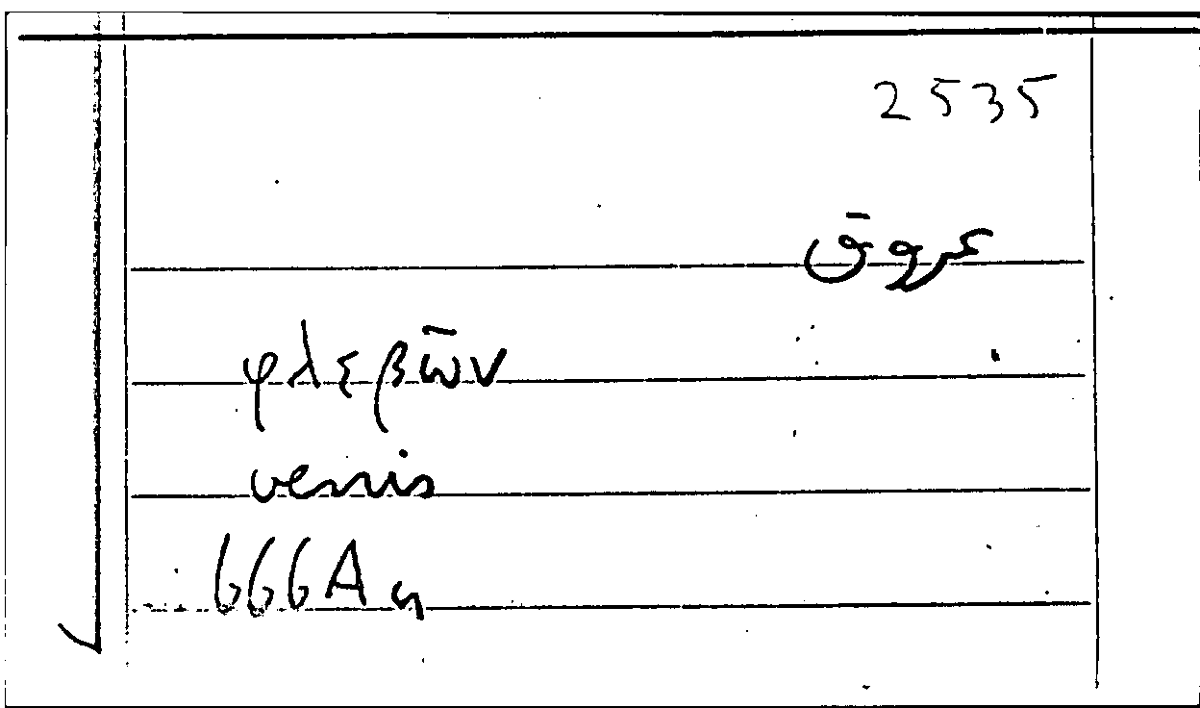 2535
عروق
φλεβῶν
venis
666A 4